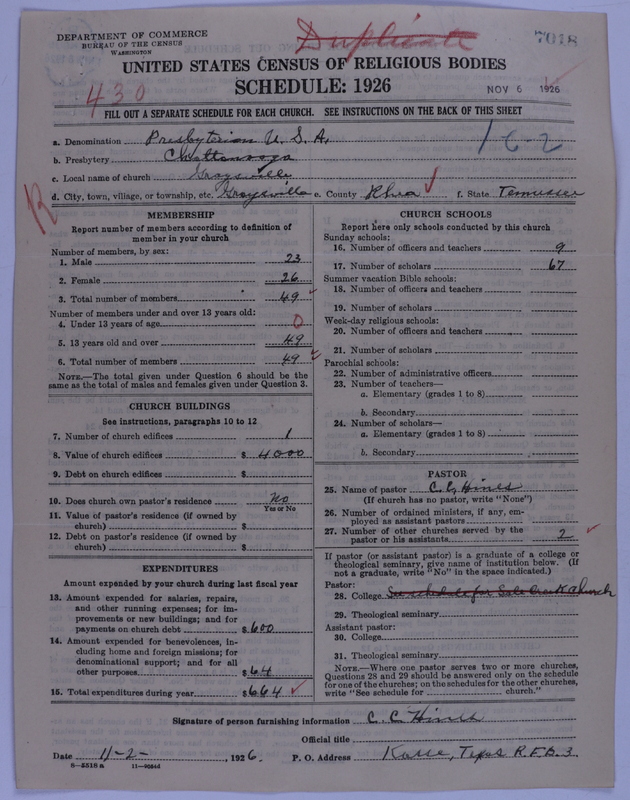 DEPARTMENT OF COMMERCE
BUREAU OF THE CENSUS
WASHINGTON
Duplicate
7018
UNITED STATES CENSUS OF RELIGIOUS BODIES
SCHEDULE: 1926
NOV 6 1926
430
FILL OUT A SEPARATE SCHEDULE FOR EACH CHURCH. SEE INSTRUCTIONS ON THE BACK OF THIS SHEET
a. Denomination Presbyterian U. S. A.
1-6-2
b. Presbytery Chattanooga
c. Local name of church Graysville
d. City, town, village, or township, etc. Graysville e. County Rhea f. State Tennessee
MEMBERSHIP
Report number of members according to definition of
member in your church
Number of members, by sex:
1. Male 23
2. Female 26
3. Total number of members 49
Number of members under and over 13 years old:
4. Under 13 years of age 0
5. 13 years old and over 49
6. Total number of members 49
NOTE.—The total given under Question 6 should be the
same as the total of males and females given under Question 3.
CHURCH BUILDINGS
See instructions, paragraphs 10 to 12
7. Number of church edifices 1
8. Value of church edifices $ 4000
9. Debt on church edifices $
10. Does church own pastor's residence No
Yes or No
11. Value of pastor's residence (if owned by
church) $
12. Debt on pastor's residence (if owned by
church) $
EXPENDITURES
Amount expended by your church during last fiscal year
13. Amount expended for salaries, repairs,
and other running expenses; for im-
provements or new buildings; and for
payments on church debt $ 600
14. Amount expended for benevolences, in-
cluding home and foreign missions; for
denominational support; and for all
other purposes $ 64
15. Total expenditures during year $ 664
CHURCH SCHOOLS
Report here only schools conducted by this church
Sunday schools:
16. Number of officers and teachers 9
17. Number of scholars 67
Summer vacation Bible schools:
18. Number of officers and teachers
19. Number of scholars
Week-day religious schools:
20. Number of officers and teachers
21. Number of scholars
Parochial schools:
22. Number of administrative officers
23. Number of teachers—
a. Elementary (grades 1 to 8)
b. Secondary
24. Number of scholars—
a. Elementary (grades 1 to 8)
b. Secondary
PASTOR
25. Name of pastor C. C. Hines
(If church has no pastor, write "None")
26. Number of ordained ministers, if any, em-
ployed as assistant pastors
27. Number of other churches served by the
pastor or his assistants 2
If pastor (or assistant pastor) is a graduate of a college or
theological seminary, give name of institution below. (If
not a graduate, write "No" in the space indicated.)
Pastor:
28. College See schedule for Sale Creek Church
29. Theological seminary
Assistant pastor:
30. College
31. Theological seminary
NOTE.—Where one pastor serves two or more churches,
Questions 28 and 29 should be answered only on the schedule
for one of the churches; on the schedules for the other churches,
write "See schedule for church."
Signature of person furnishing information C. C. Hines
Official title
Date 11-2-, 1926. P. O. Address R. F. D. 3
8—5518 a 11—9054d